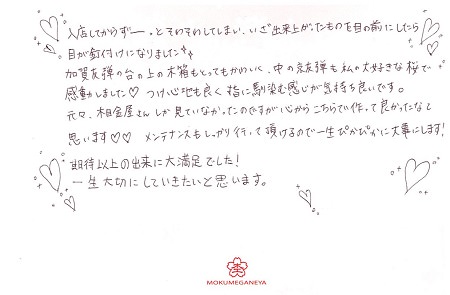 入店してからずーーっとそわそわしてしまい、いざ出来上がったものを目の前にしたら
目が釘付けになりました
加賀友禅の台の上の木箱もとってもかわいく、中の京友禅も私の大好きな桜で
感動しました♡ つけ心地も良く指に馴染む感じが気持ち良いです。
元々、杢目金屋さんしか見ていなかったのですが心からこちらで作って良かったなと
思います♡♡ メンテナンスもしっかり行って頂けるので一生ぴかぴかに大事にします!
期待以上の出来に大満足でした!
一生大切にしていきたいと思います。
MOKUMEGANEYA